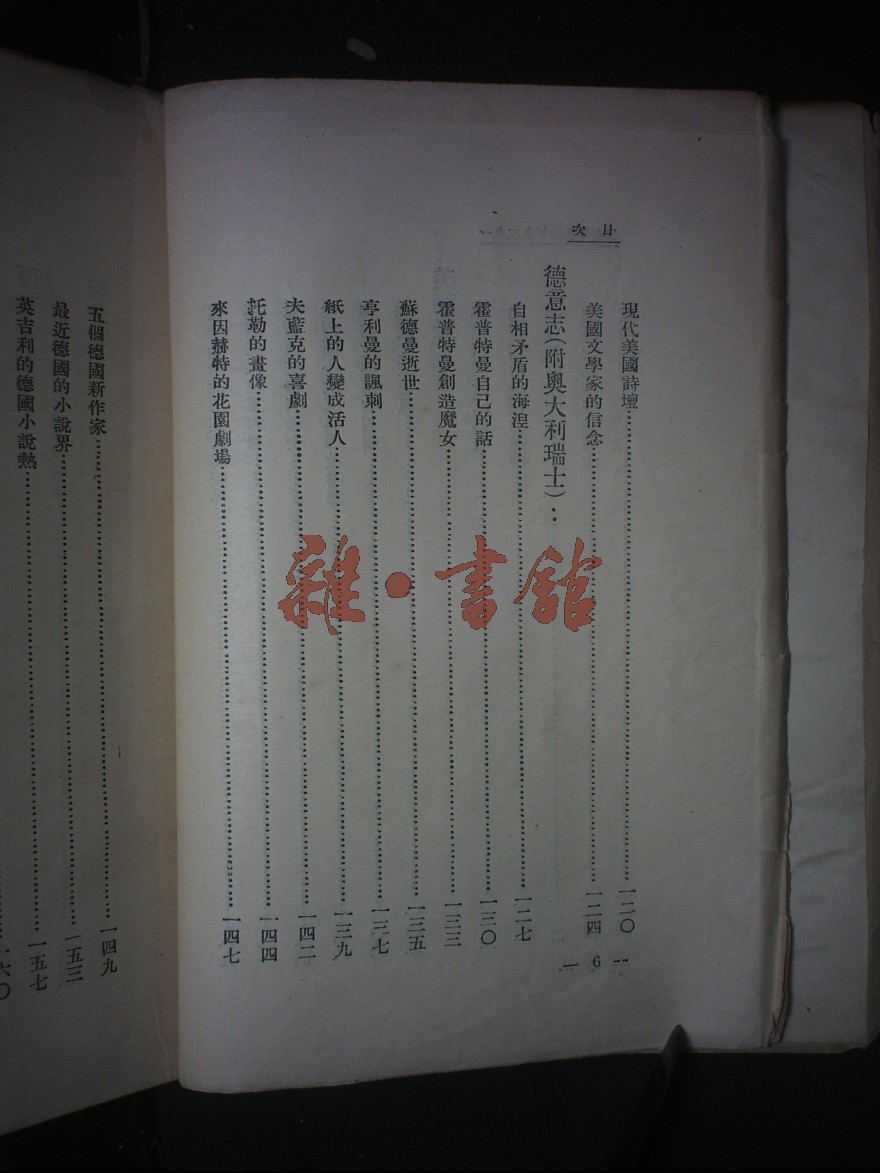 目次
現代美國詩壇……一二〇
美國文學家的信念……一二四
德意志（附奧大利瑞士）：
自相矛盾的海涅……一二七
霍普特曼自己的話……一三〇
霍普特曼創造魔女……一三三
蘇德曼逝世……一三五
亨利曼的諷刺……一三七
紙上的人變成活人……一三九
夫藍克的喜劇……一四二
托勒的畫像……一四四
來因赫特的花園劇場……一四七
— 6 —
五個德國新作家……一四九
最近德國的小說界……一五三
英吉利的德國小說熱……一五七
一六〇
雜·書館